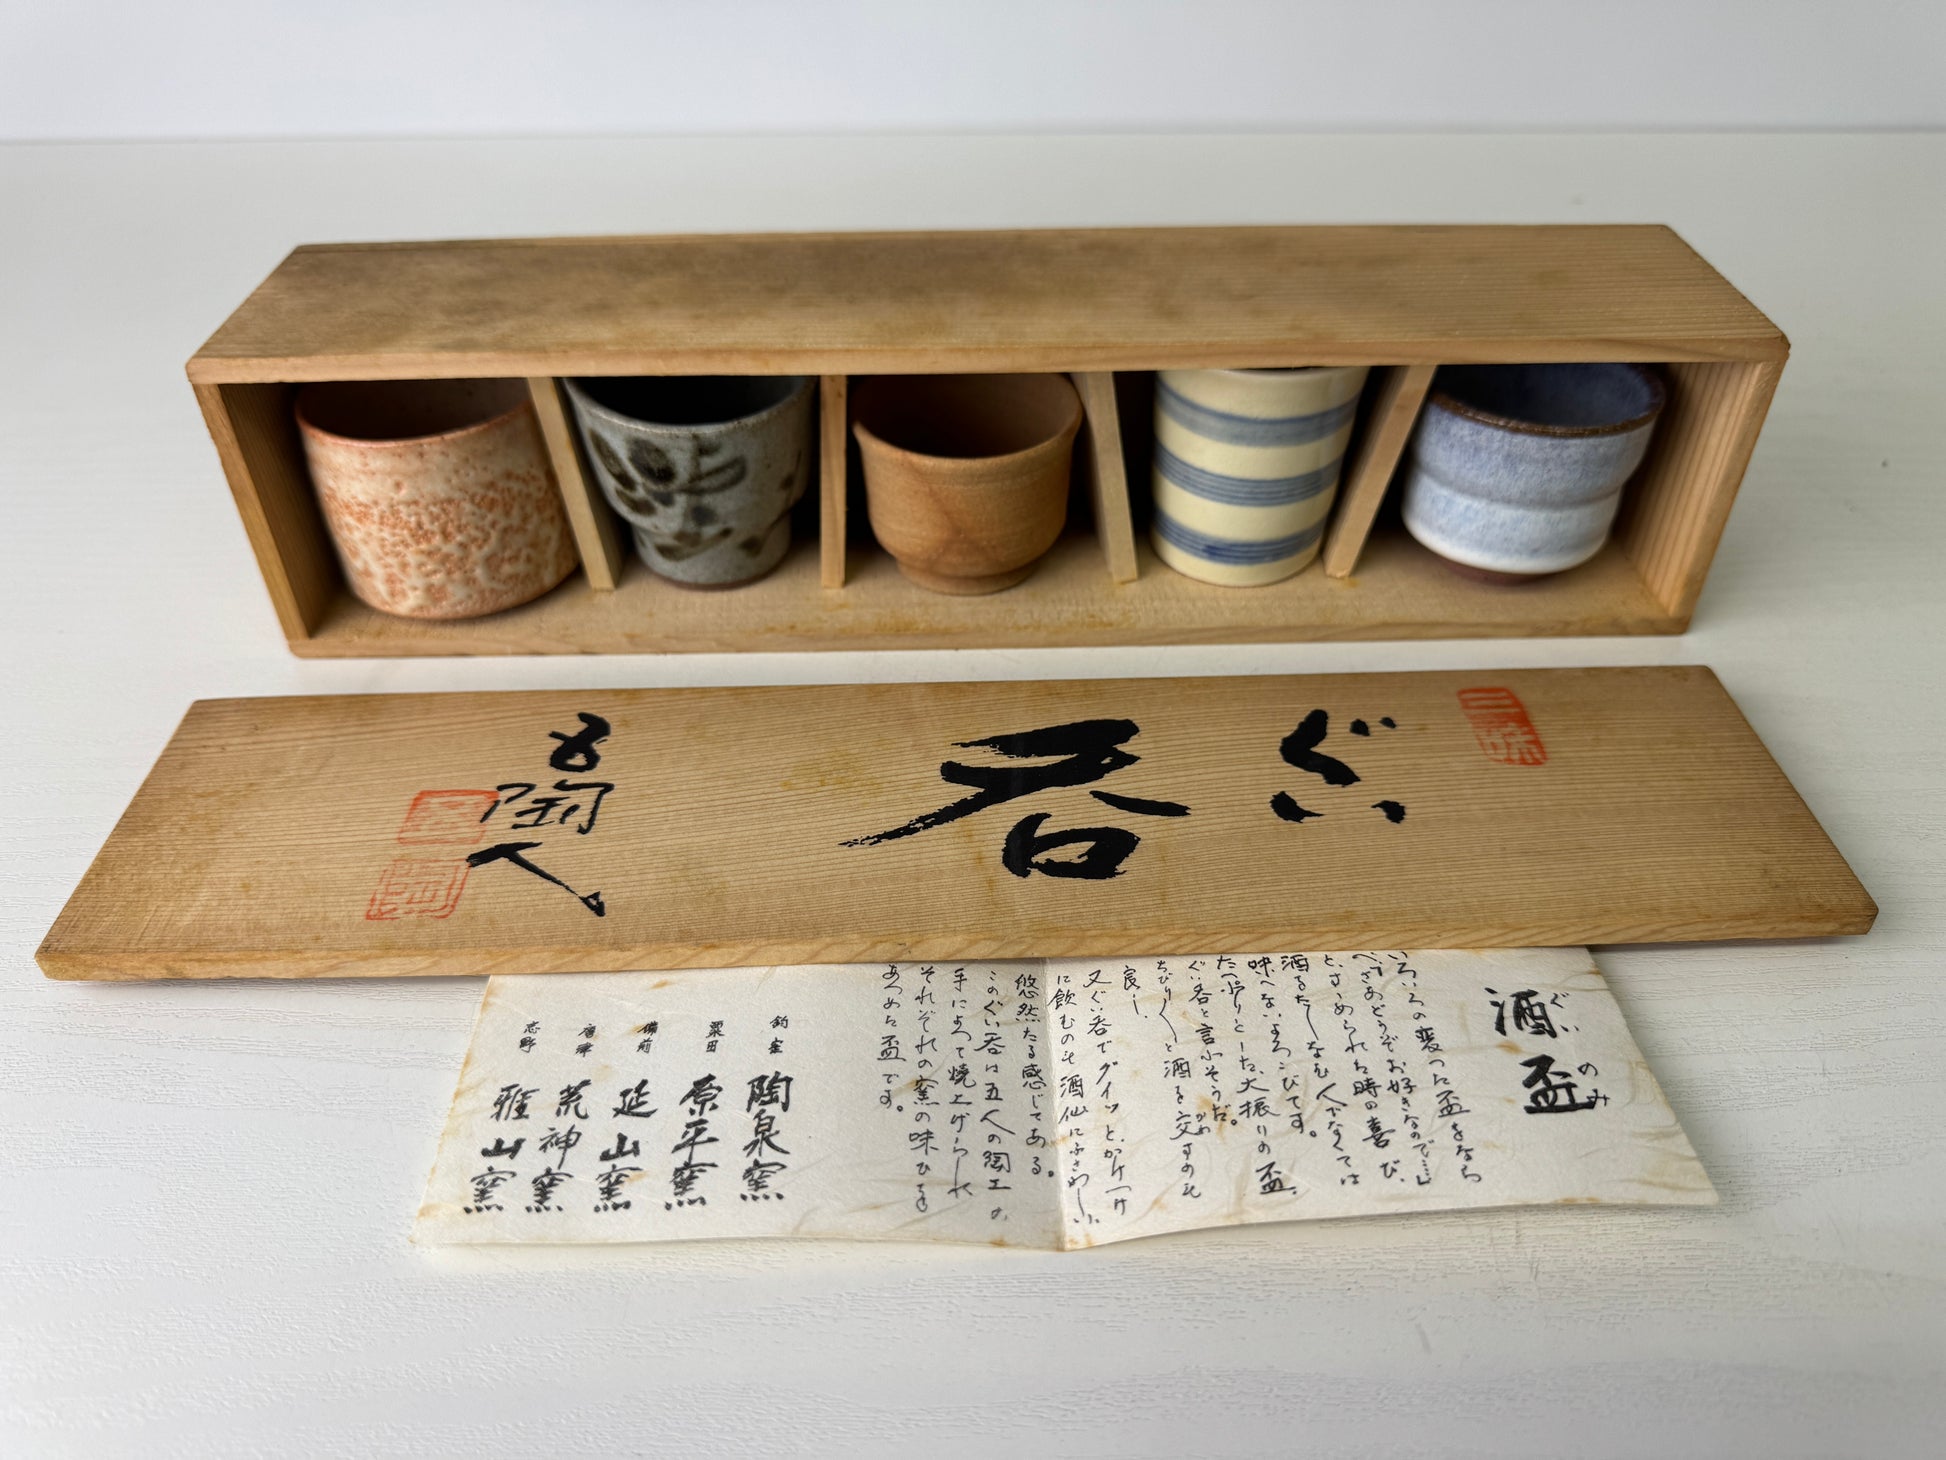 三味
ぐい
呑
五陶人
五陶
酒盃
ぐい
のみ
いろいろの変った盃をなら
べ、さあどうぞお好きなので……
と、すゝめられた時の喜び、
酒をたしなむ人でなくては
味へないよろこびです。
たっぷりとした大振りの盃。
ぐい呑と言ふそうだ。
ちびりちびりと酒を交すのも
かわ
良し、
又ぐい呑でグイッとかけつけ
に飲むのも酒仙にふさわしい
悠然たる感じである。
このぐい呑は五人の陶工の
手によって焼上げられ
それぞれの窯の味ひを
あつめた盃です。
鈞窯 陶泉窯
粟田 原平窯
備前 延山窯
唐津 荒神窯
志野 雅山窯